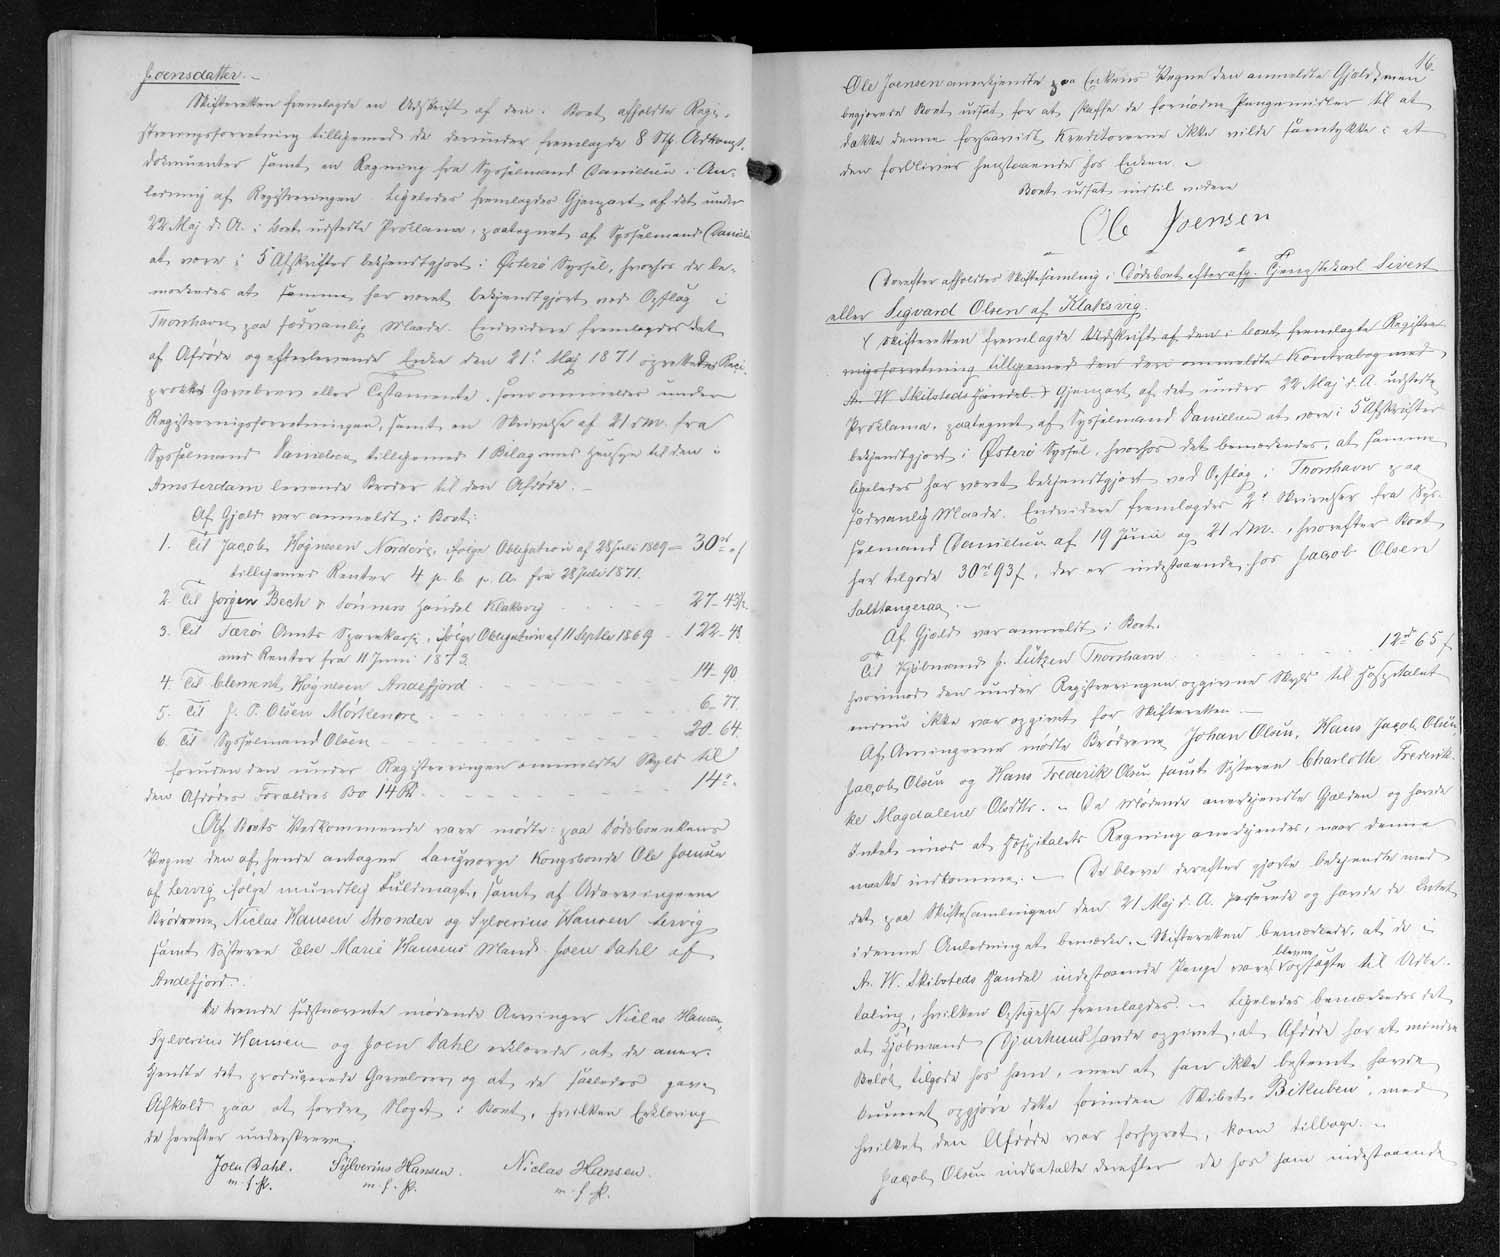 Joensdatter. –
Skifteretten fremlagde en Udskrift af den i Boet afholdte Regi-
streringsforretning tilligemed de derunder fremlagde 8 Stk Adkomst-
dokumenter samt en Regning fra Sysselmand Danielsen i An-
ledning af Registreringen. Ligeledes fremlagdes Gjenpart af det under
22 Maj d. A. i Boet udstedte Proklama, paategnet af Sysselmand Daniels
at være i 5 Afskrifter bekjendtgjort i Østerø Syssel, hvorhos de be-
mærkedes at samme har været bekjendtgjort ved Opslag i
Thorshavn paa sædvanlig Maade. Endvidere fremlagdes det
af Afdøde og efterlevende Enke den 21' Maj 1871 oprettede Reci-
prokke Gavebrev eller Testamente, som ommeldes under
Registreringsforretningen, samt en Skrivelse af 21 dM. fra
Sysselmand Danielsen tilligemed 1 Bilag med Hensyn til den i
Amsterdam levende Broder til den Afdøde. –
Af Gjæld var anmeldt i Boet:
1. Til Jacob Høgnesen Nordøre, ifølge Obligation af 28 Juli 1869 – 30 rd " f
tilligemed Renter 4 p. C. p. A. fra 28 Juli 1871.
2. Til Jørgen Bech & Sønners Handel Klaksvig - - - 27 - 43½
3. Til Færø Amts Sparekasse, ifølge Obligation af 11 Septbr 1869 - 122 - 48
med Renter fra 11 Juni 1873.
4. Til Clement Høgnesen Andefjord - - - 14 - 90
5. Til J. P. Olsen Mørkenøre - - - 6 - 77
6. Til Sysselmand Olsen - - - 20 - 64
foruden den under Registreringen ommeldte Skyld til
den Afdødes Forældres Bo 14 Rd - - - 14 " -
Af Boets Vedkommende vare mødte: paa Dødsboenkens
Vegne den af hende antagne Laugværge Kongsbonde Ole Joensen
af Lervig ifølge mundtlig Fuldmagt, samt af Udarvingerne
Brødrene Niclas Hansen Strønder og Sylverius Hansen Lervig
samt Søsteren Else Marie Hansens Mand Joen Dahl af
Andefjord.
De trende sidstnævnte mødende Arvinger Niclas Hansen,
Sylverius Hansen og Joen Dahl erklærede, at de aner-
kjendte det producerede Gavebrev og at de saaledes gave
Afkald paa at fordre Noget i Boet, hvilken Erklæring
de herefter underskreve.
Joen Dahl. Sylverius Hansen. Niclas Hansen.
m. f. P. m. f. P. m. f. P.
16.
Ole Joensen anerkjendte paa Enkens Vegne den anmeldte Gjæld, men
begjærede Boet udsat for at skaffe de fornødne Pengemidler til at
dække denne forsaavidt Kreditorerne ikke vilde samtykke i at
den forblives henstaaende hos Enken. –
Boet udsat indtil videre
Ole Joensen
Derefter afholdtes Skiftesamling i Dødsboet efter afg. Tjenestekarl Sivert
eller Sigvard Olsen af Klaksvig.
Skifteretten fremlagde Udskrift af den i Boet fremlagte Registre-
ringsforretning tilligemed den deri ommeldte Kontrabog med
A. W. Skibsteds Handel Gjenpart af det under 22 Maj d. A. udstedte
Proklama, paategnet af Sysselmand Danielsen at være i 5 Afskrifter
bekjendtgjort i Østerø Syssel, hvorhos det bemærkedes, at samme
ligeledes har været bekjendtgjort ved Opslag i Thorshavn paa
sædvanlig Maade. Endvidere fremlagdes 2' Skrivelser fra Sys-
selmand Danielsen af 19 Juni og 21 dM., hvorefter Boet
har tilgode 30 rd 93 f, der er indestaaende hos Jacob Olsen
Salttangeraa. –
Af Gjæld var anmeldt i Boet:
Til Kjøbmand H. Lützen Thorshavn - - - 12 rd 65 f
hvorimod den under Registreringen opgivne Skyld til Hospitalet
endnu ikke var opgivet for Skifteretten. –
Af Arvingerne mødte Brødrene Johan Olsen, Hans Jacob Olsen,
Jacob Olsen og Hans Frederik Olsen samt Søsteren Charlotte Frederik-
ke Magdalene Olsdtr. – De Mødende anerkjendte Gjælden og havde
Intet imod at Hospitalets Regning anerkjendes, naar denne
maatte indkomme. – De bleve derefter gjorte bekjendte med
det paa Skiftesamlingen den 21 Maj d. A. passerede og havde de Intet
i denne Anledning at bemærke. – Skifteretten bemærkede, at de i
A. W. Skibsteds Handel indestaaende Penge vare blevne opsagte til Udbe-
taling, hvilken Opsigelse fremlagdes. – Ligeledes bemærkedes det
at Kjøbmand Djurhuus havde opgivet, at Afdøde har et mindre
Beløb tilgode hos ham, men at han ikke bestemt havde
kunnet opgjøre dette forinden Skibet "Bikuben", med
hvilket den Afdøde var forhyret, kom tilbage. –
Jacob Olsen indbetalte derefter de hos ham indestaaende